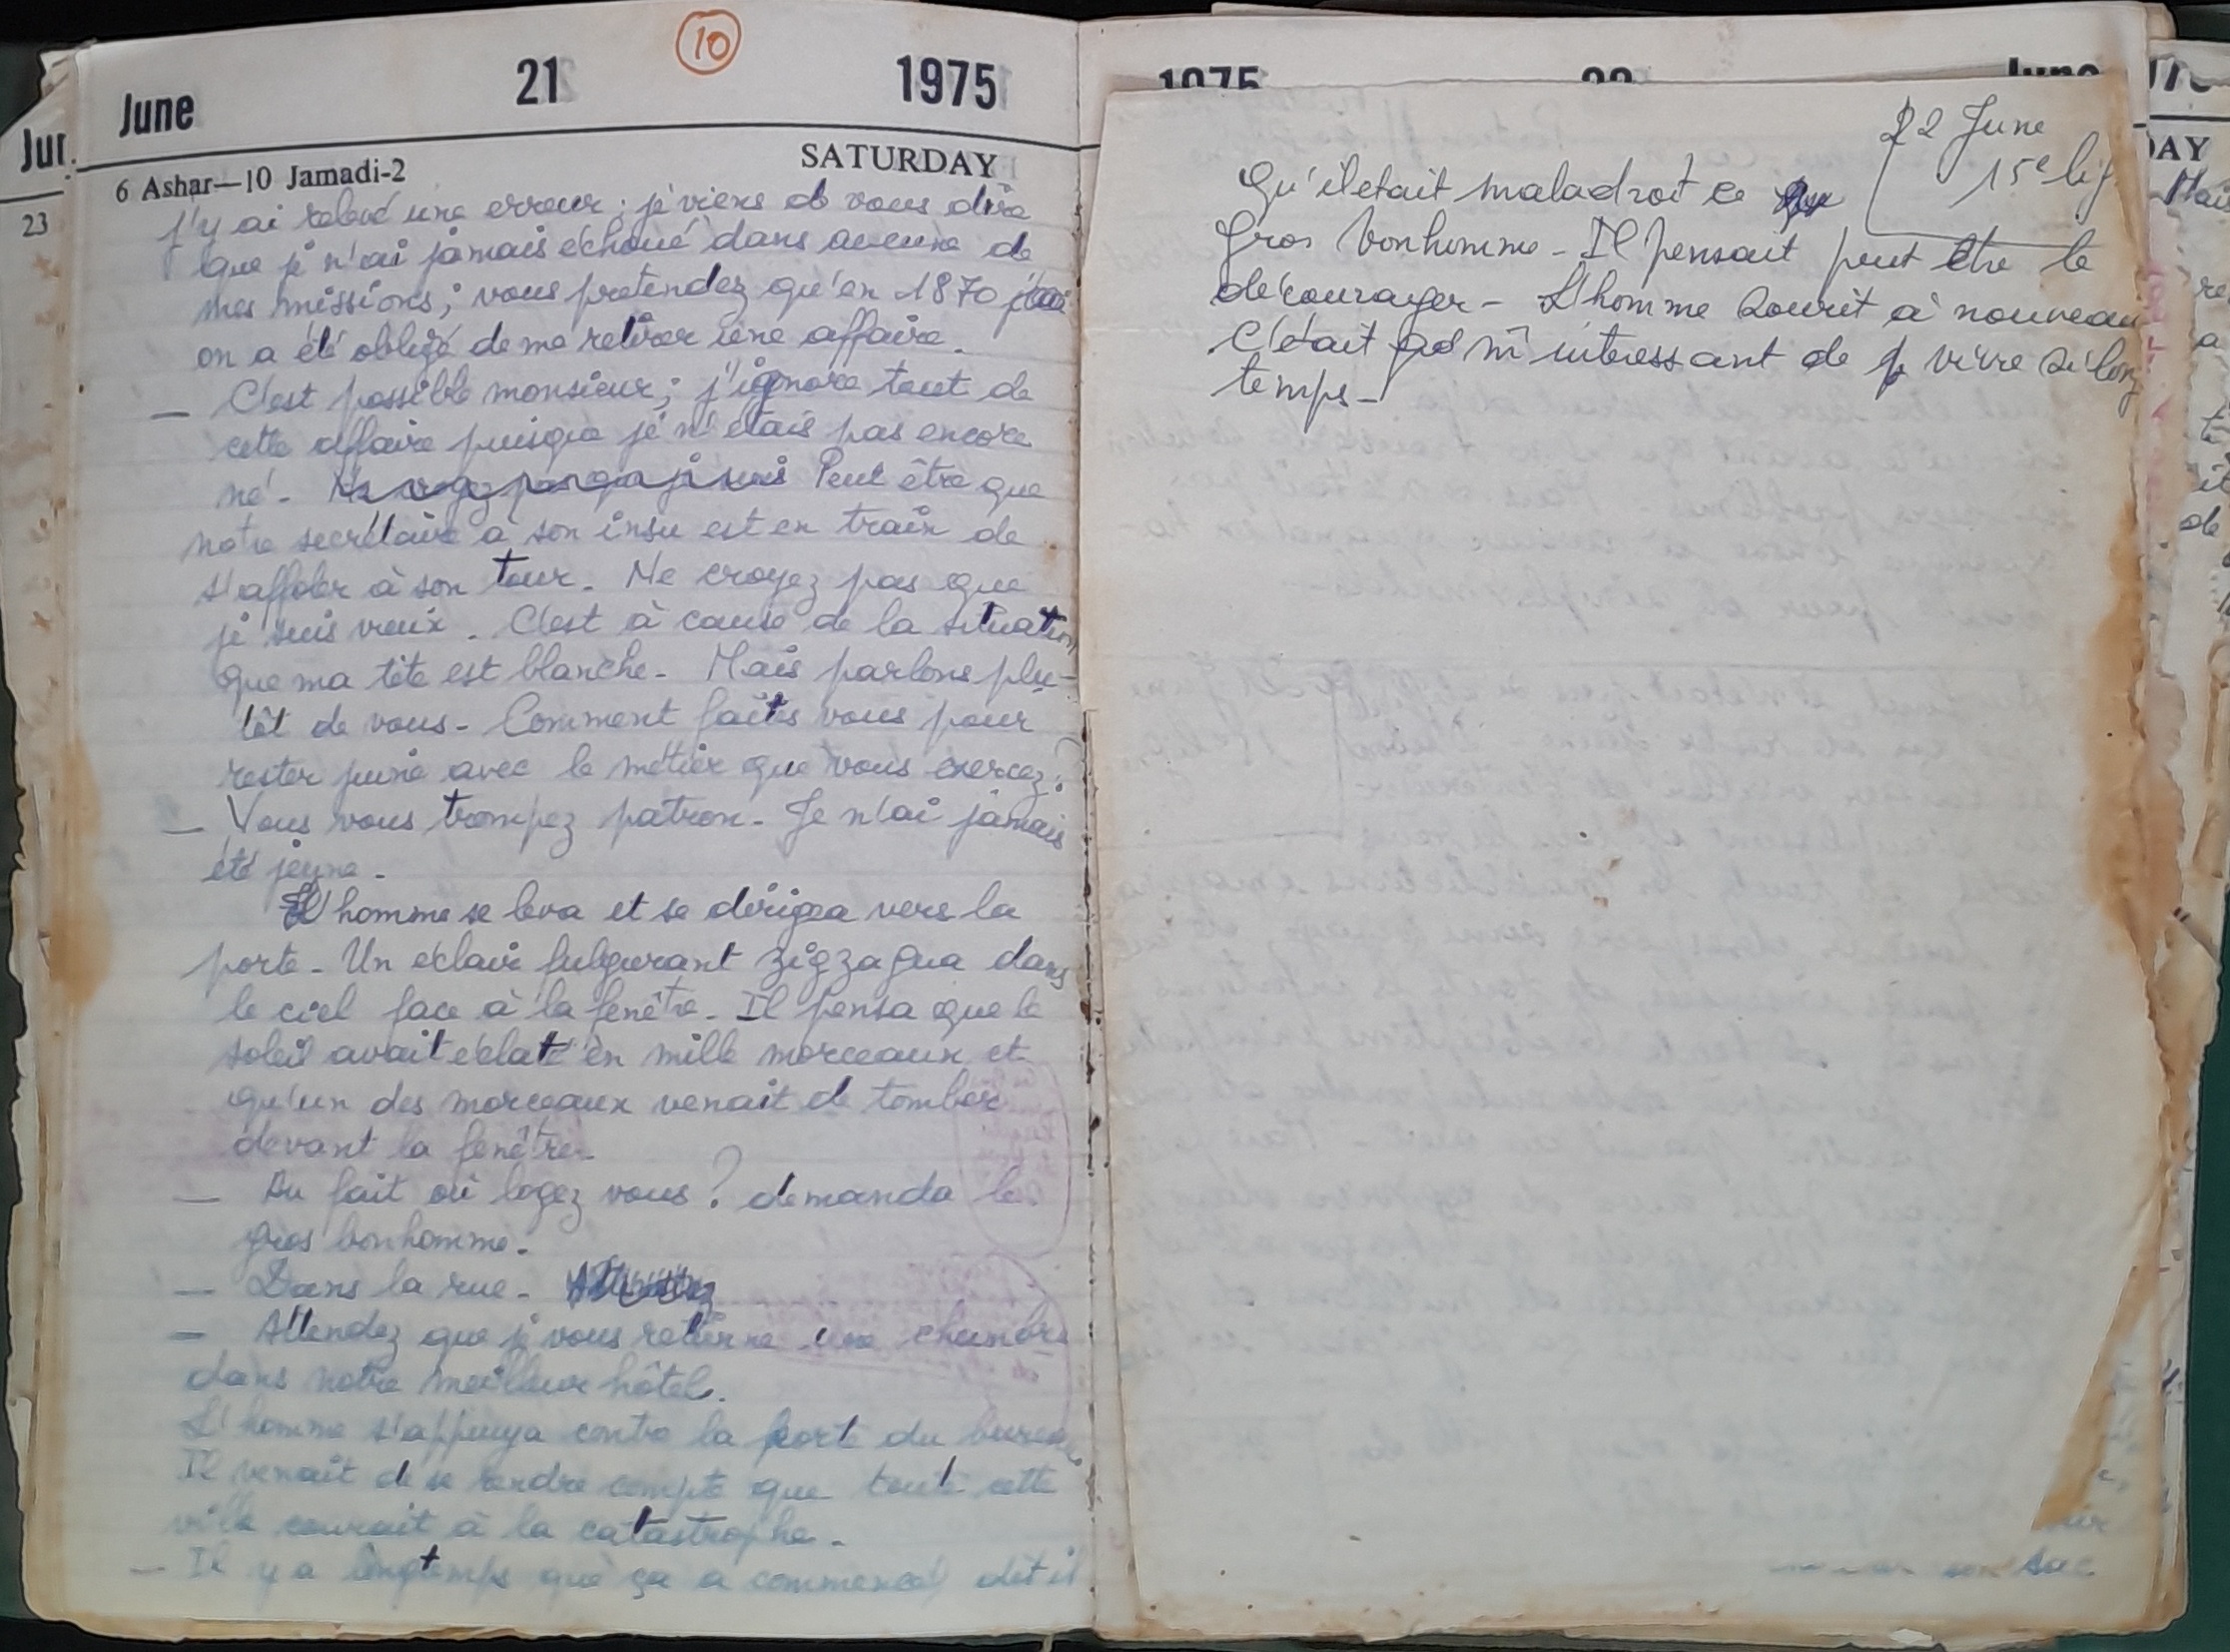 10
June 21 1975
6 Ashar—10 Jamadi-2 SATURDAY
J'y ai relevé une erreur ; je viens de vous dire
que je n'ai jamais échoué dans aucune de
mes missions ; vous pretendez qu'en 1870
on a été obligé de me retirer une affaire.
— C'est possible monsieur ; j'ignore tout de
cette affaire puisque je n'étais pas encore
né - Ne croyez pas que je suis Peut être que
notre secrétaire à son insu est en train de
s'affoler à son tour. Ne croyez pas que
je suis vieux. C'est à cause de la situation
que ma tête est blanche - Mais parlons plu-
tôt de vous - Comment faites vous pour
rester jeune avec le métier que vous exercez ?
— Vous vous trompez patron - Je n'ai jamais
été jeune -
L'homme se leva et se dirigea vers la
porte - Un éclair fulgurant zigzagua dans
le ciel face à la fenêtre - Il pensa que le
soleil avait éclaté en mille morceaux et
qu'un des morceaux venait de tomber
devant la fenêtre -
— Au fait où logez vous ? demanda le
gros bonhomme.
— Dans la rue -
— Attendez que je vous retienne une chambre
dans notre meilleur hôtel.
L'homme s'appuya contre la porte du bureau.
Il venait de se rendre compte que toute cette
ville courait à la catastrophe -
— Il y a longtemps que ça a commencé, dit il
1975 22 June
22 June
15e lig
Qu'il etait maladroit ce
gros bonhomme - Il pensait peut être le
décourager - L'homme sourit à nouveau
C'était si interessant de vivre si long
temps -
Jur
23
DAY
Mais
de
sac